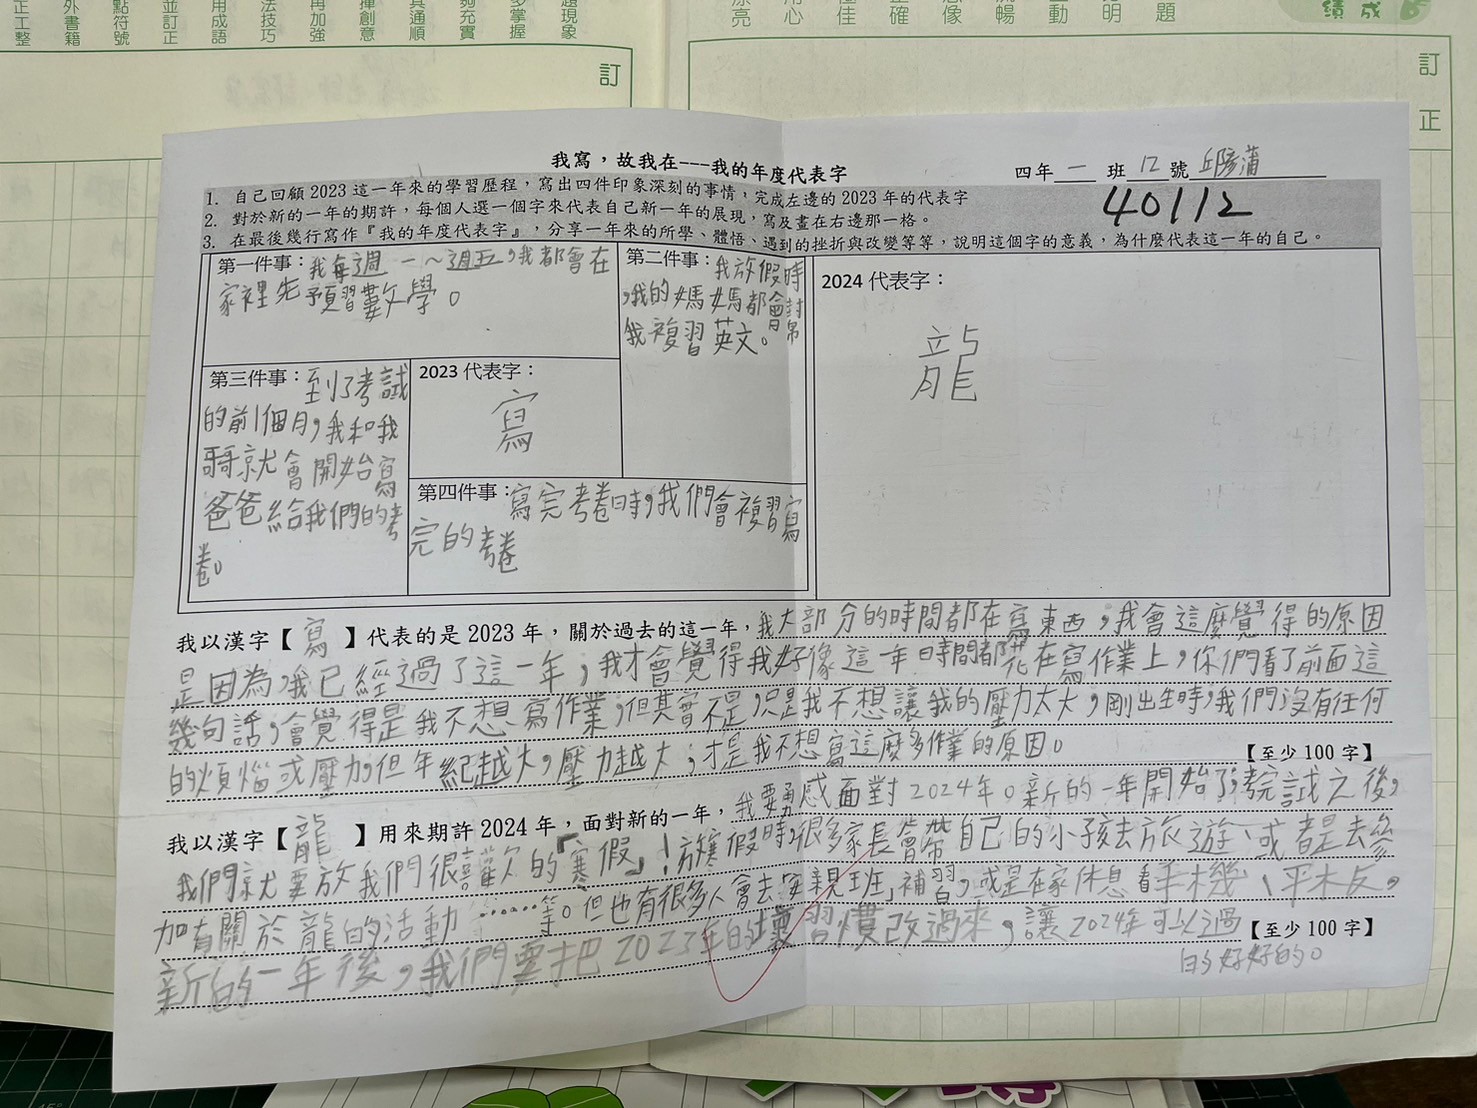 正工整
外書籍
點符號
並訂正
用成語
法技巧
再加強
揮創意
具通順
夠充實
多掌握
題現象
訂
題
成績
訂正
我寫，故我在---我的年度代表字
四年一班12號 邱彥蒲
40112
1. 自己回顧2023這一年來的學習歷程，寫出四件印象深刻的事情，完成左邊的2023年的代表字
2. 對於新的一年的期許，每個人選一個字來代表自己新一年的展現，寫及畫在右邊那一格。
3. 在最後幾行寫作『我的年度代表字』，分享一年來的所學、體悟、遇到的挫折與改變等等，說明這個字的意義，為什麼代表這一年的自己。
第一件事：我每週一～週五，我都會在
家裡先預習數學。
第二件事：我放假時
，我的媽媽都會幫
我複習英文。
2024代表字：
龍
第三件事：到了考試
的前1個月，我和我
哥哥就會開始寫
爸爸給我們的考
卷。
2023代表字：
寫
第四件事：寫完考卷時，我們會複習寫
完的考卷
我以漢字【寫】代表的是2023年，關於過去的這一年，我大部分的時間都在寫東西，我會這麼覺得的原因
是因為，我已經過了這一年，我才會覺得我好像這一年時間都花在寫作業上，你們看了前面這
幾句話，會覺得是我不想寫作業，但其實不是，只是我不想讓我的壓力太大，剛出生時，我們沒有任何
的煩惱或壓力，但年紀越大，壓力越大，才是我不想寫這麼多作業的原因。【至少100字】
我以漢字【龍】用來期許2024年，面對新的一年，我要勇感面對2024年。新的一年開始了，考完試之後，
我們就要放我們很喜歡的「寒假」！放寒假時，很多家長會帶自己的小孩去旅遊、或者是去參
加有關於龍的活動……等。但也有很多人會去「安親班」補習，或是在家休息看手機、平板。
新的一年後，我們要把2023年的壞習慣改過來，讓2024年可以過【至少100字】
的好好的。